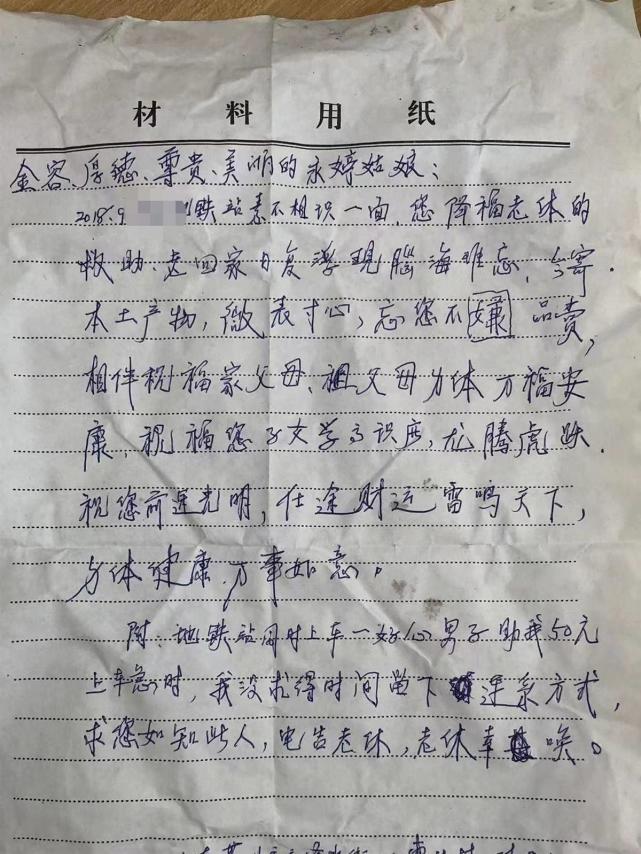 材料用纸
金容、厚德、尊貴、美丽的永婷姑娘：
2018.9 铁站素不相识一面，您降福老体的
救助、走回家日复浮現腦海难忘，今寄
本土产物，微表寸心，忘您不嫌 品贵，
相伴祝福家父母、祖父母身体万福安
康，祝福您子女学高识庶，龙腾虎跃．
祝您前途光明，仕途财运雷鸣天下，
身体健康 万事如意。
附：地铁站同时上车一好心男子助我50元
上车急时，我没求得时间留下 连系方式，
求您如知此人，电告老体，老体幸 唤。